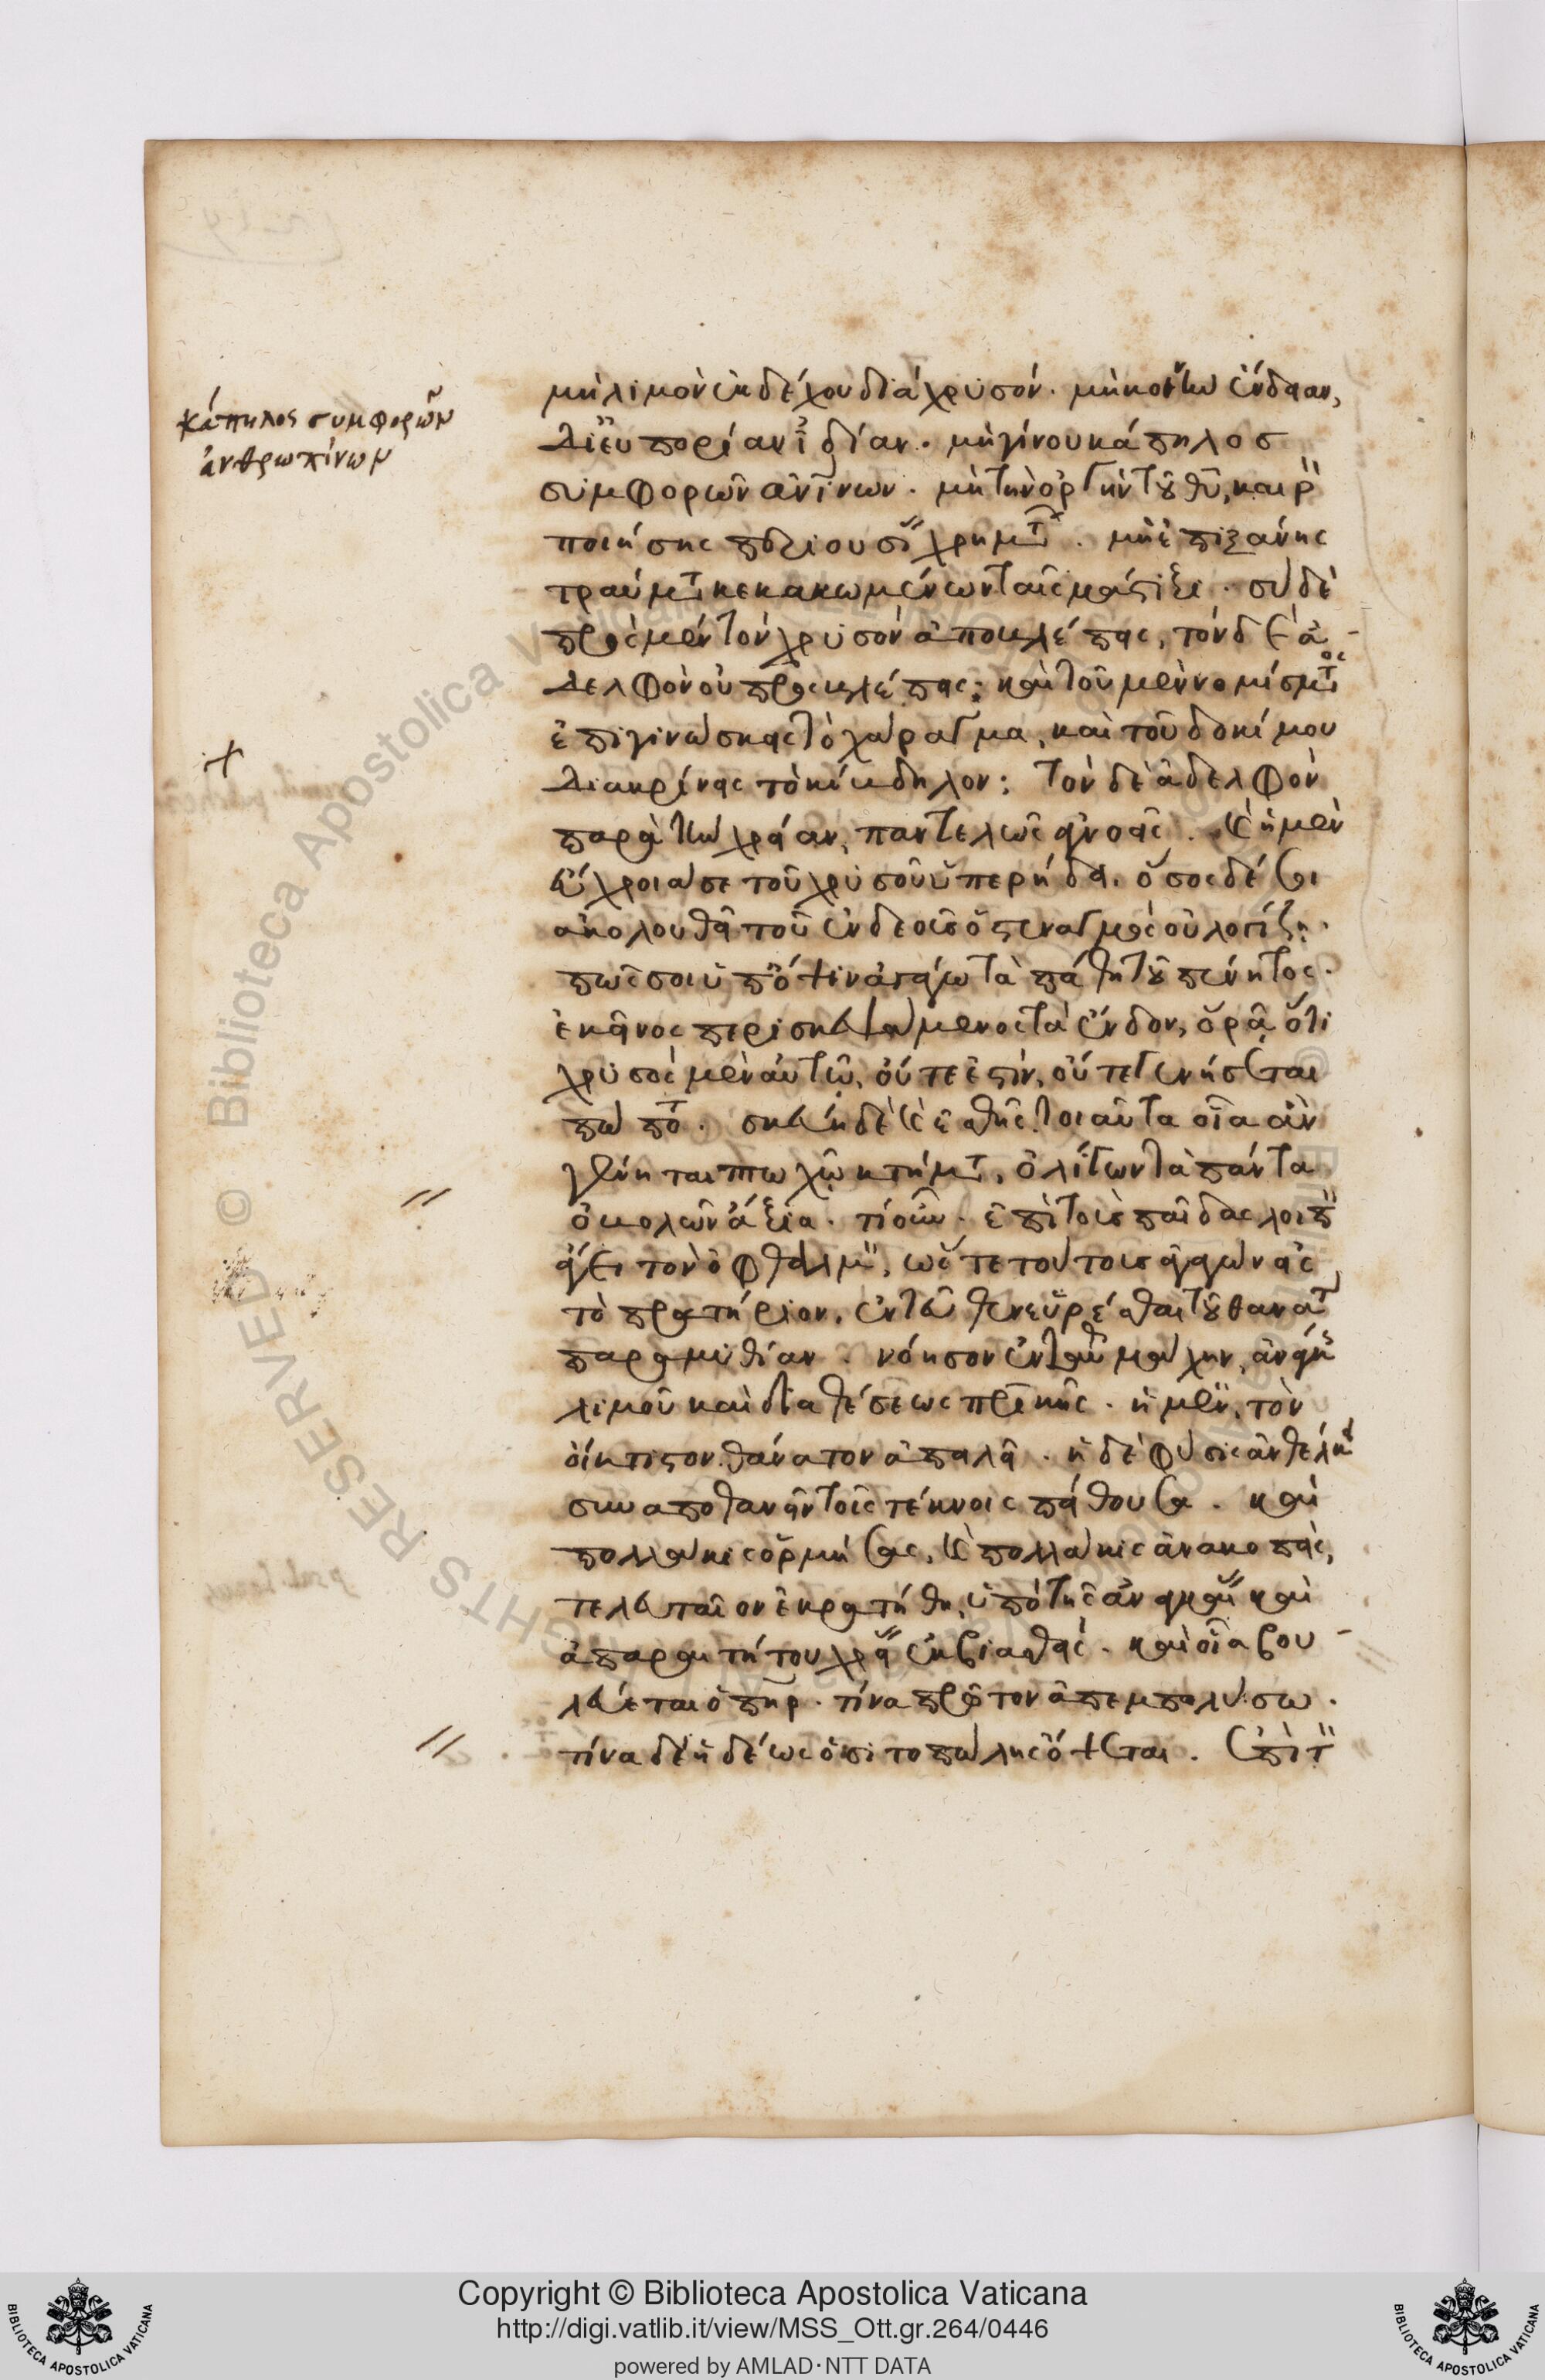 κάπηλος συμφορῶν
ἀνθρωπίνων
μὴ λιμὸν ἐκδέχου διὰ χρυσόν. μὴ κοινὴν ἔνδειαν,
δι' εὐπορίαν ἰδίαν. μὴ γίνου κάπηλος
συμφορῶν ἀνίνων. μὴ τὴν ὀργὴν τοῦ θυ, καιρ
ποιήσης περιουσί χρημτ. μὴ ἐπιξάνης
τραύμτ κεκακωμένων ταῖς μάστιξι. σὺ δὲ
πρὸς μὲν τὸν χρυσὸν ἀποβλέπεις, τὸν δὲ ἀ-
δελφὸν οὐ προσβλέπεις; καὶ τοῦ μὲν νομίσμτος
ἐπιγινώσκεις τὸ χάραγμα, καὶ τοῦ δοκίμου
διακρίνεις τὸ κίβδηλον: τὸν δὲ ἀδελφὸν
παρὰ τὴν χρείαν, παντελῶς ἀγνοεῖς. καὶ ἡ μὲν
εὔχροιά σε τοῦ χρυσοῦ ὑπερήδει. ὅσος δέ σοι
ἀκολουθεῖ τοῦ ἐνδεοῦς ὁ στεναγμὸς οὐ λογίζη.
πῶς σοι ὑπ' ὄψιν ἀγάγω τὰ πάθη τοῦ πένητος.
ἐκεῖνος περισκεψάμενος τὰ ἔνδον, ὁρᾶ ὅτι
χρυσὸς μὲν αὐτῶ, οὔτε ἐστίν, οὔτε γενήσεται
πώ ποτ. σκεύη δὲ καὶ ἐσθὴς τοιαῦτα οἷα ἂν
γένηται πτωχῶ κτήμτ, ὀλίγων τὰ πάντα
ὀβολῶν ἄξια. τί οὖν. ἐπὶ τοὺς παῖδας λοιπ
ἄγει τὸν ὀφθαλμ, ὥστε τούτους ἀγαγὼν εἰς
τὸ πρατήριον, ἐντεῦθεν εὑρέσθαι τοῦ θανάτ
παραμυθίαν. νόησον ἐνταῦθ μάχην, ἀνάγκ
λιμοῦ καὶ διαθέσεως πρικῆς. ἡ μὲν, τὸν
οἴκτιστον θάνατον ἀπειλεῖ. ἡ δὲ φύσις ἀνθέλκει
συναποθανεῖν τοῖς τέκνοις πείθουσα. καὶ
πολλάκις ὁρμήσας, καὶ πολλάκις ἀνακοπεὶς,
τελευταῖον ἐκρατήθη, ὑπὸ τῆς ἀναγκαί καὶ
ἀπαραιτήτου χρεί ἐκβιασθείς. καὶ οἷα βου-
λεύεται ὁ πηρ. τίνα πρῶτον ἀπεμπολήσω.
τίνα δὲ ἡδέως ὁ σιτοπώλης ὄψεται. ἐπὶ τ